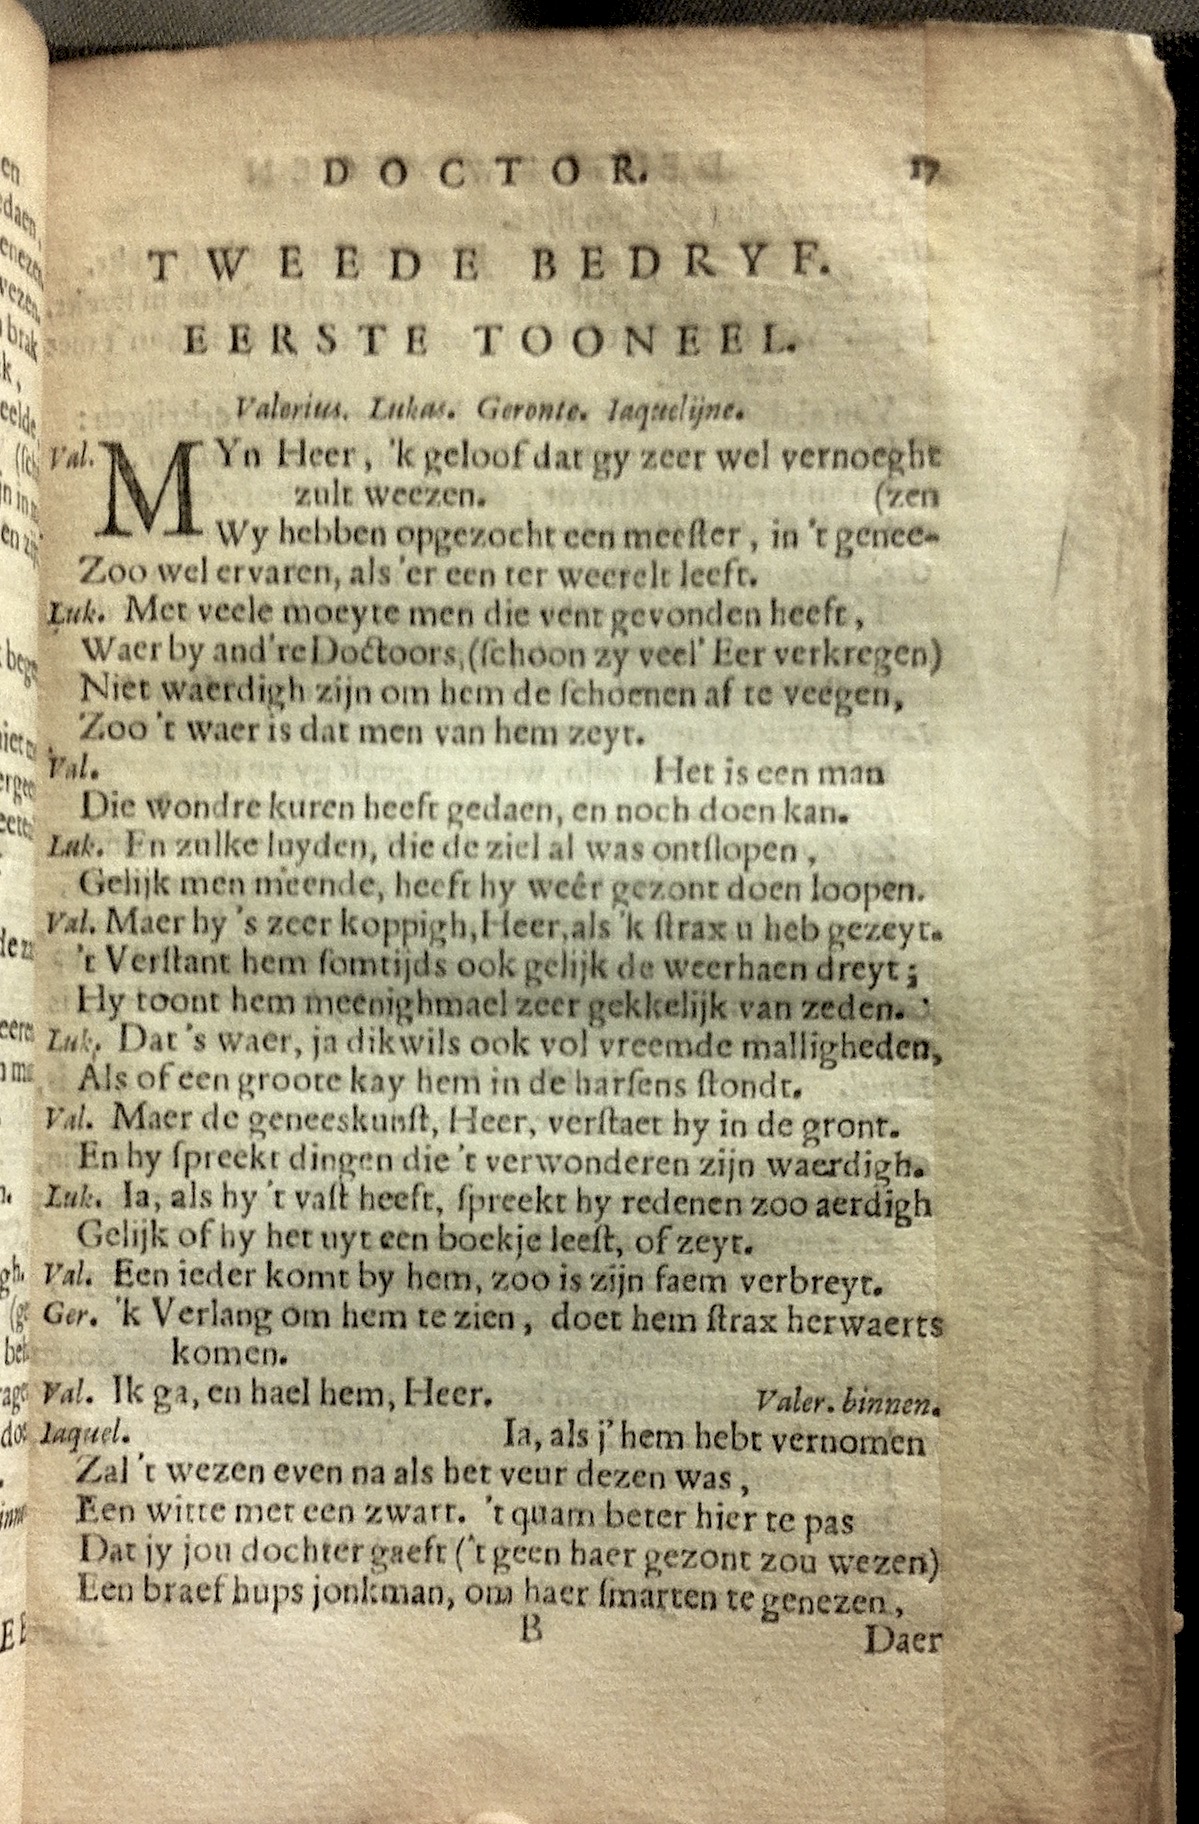 DOCTOR. 17
TWEEDE BEDRYF.
EERSTE TOONEEL.
Valerius. Lukas. Geronte. Iaquelijne.
Val. MYn Heer, 'k geloof dat gy zeer wel vernoeght
zult weezen. (zen
Wy hebben opgezocht een meeſter, in 't genee-
Zoo wel ervaren, als 'er een ter weerelt leeft.
Luk. Met veele moeyte men die vent gevonden heeft,
Waer by and're Doctoors, (ſchoon zy veel' Eer verkregen)
Niet waerdigh zijn om hem de ſchoenen af te veegen,
Zoo 't waer is dat men van hem zeyt.
Val. Het is een man
Die wondre kuren heeft gedaen, en noch doen kan.
Luk. En zulke luyden, die de ziel al was ontſlopen,
Gelijk men meende, heeft hy weêr gezont doen loopen.
Val. Maer hy 's zeer koppigh, Heer, als 'k ſtrax u heb gezeyt.
't Verſtant hem ſomtijds ook gelijk de weerhaen dreyt;
Hy toont hem meenighmael zeer gekkelijk van zeden.
Luk. Dat 's waer, ja dikwils ook vol vreemde malligheden,
Als of een groote kay hem in de harſens ſtondt.
Val. Maer de geneeskunſt, Heer, verſtaet hy in de gront.
En hy ſpreekt dingen die 't verwonderen zijn waerdigh.
Luk. Ia, als hy 't vaſt heeft, ſpreekt hy redenen zoo aerdigh
Gelijk of hy het uyt een boekje leeſt, of zeyt.
Val. Een ieder komt by hem, zoo is zijn faem verbreyt.
Ger. 'k Verlang om hem te zien, doet hem ſtrax herwaerts
komen.
Val. Ik ga, en hael hem, Heer. Valer. binnen.
Iaquel. Ia, als j' hem hebt vernomen
Zal 't wezen even na als het veur dezen was,
Een witte met een zwart. 't quam beter hier te pas
Dat jy jou dochter gaeft ('t geen haer gezont zou wezen)
Een braef hups jonkman, om haer ſmarten te genezen,
B Daer